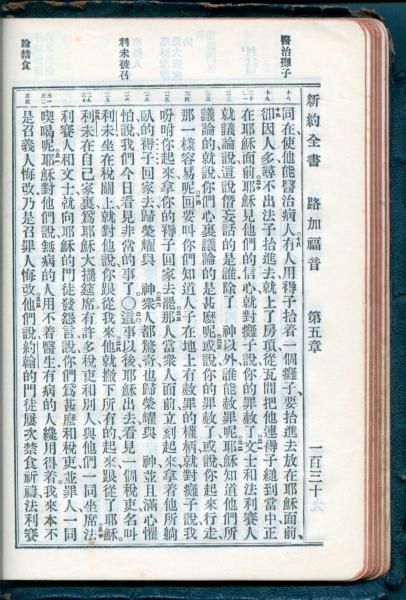 新約全書 路加福音 第五章 一百三十
醫治癱子
利未被召
論禁食
同在使他能醫治病人有人用褥子抬着一個癱子要抬進去放在耶穌面前
卻因人多尋不出法子抬進去就上了房頂從瓦間把他連褥子縋到當中正
在耶穌面前耶穌見他們的信心就對癱子說你的罪赦了文士和法利賽人
就議論說這說僭妄話的是誰除了 神以外誰能赦罪呢耶穌知道他們所
議論的就說你們心裏議論的是甚麽呢或說你的罪赦了或說你起來行走
那一樣容易呢但要叫你們知道人子在地上有赦罪的權柄就對癱子說我
吩咐你起來拿你的褥子回家去罷那人當衆人面前立刻起來拿着他所躺
臥的褥子回家去歸榮耀與 神衆人都驚奇也歸榮耀與 神並且滿心懼
怕說我們今日看見非常的事了〇這事以後耶穌出去看見一個稅吏名叫
利未坐在稅關上就對他說你跟從我來他就撇下所有的起來跟從了耶穌
利未在自己家裏爲耶穌大擺筵席有許多稅吏和別人與他們一同坐席法
利賽人和文士就向耶穌的門徒發怨言說你們爲甚麽和稅吏並罪人一同
喫喝呢耶穌對他們說無病的人用不着醫生有病的人纔用得着我來本不
是召義人悔改乃是召罪人悔改他們說約翰的門徒屢次禁食祈禱法利賽